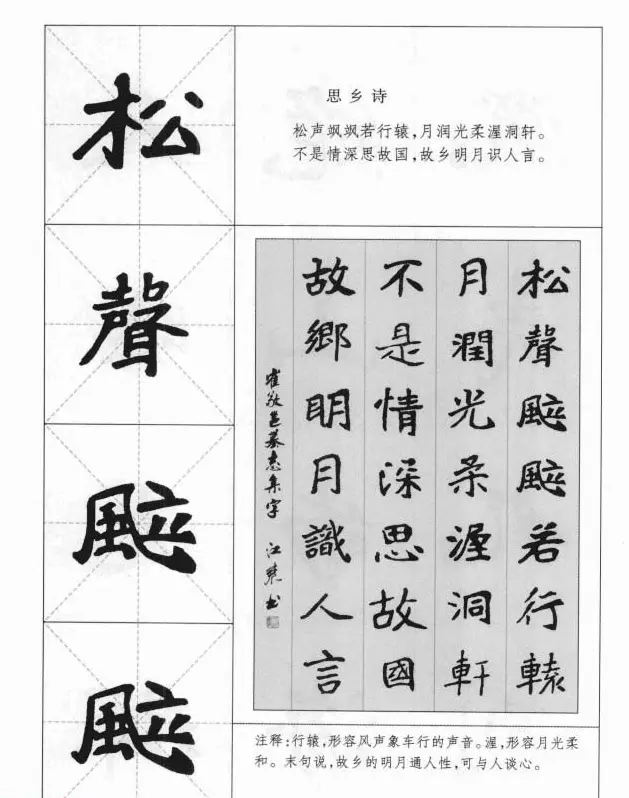 松
聲
颯
颯
思乡诗
松声飒飒若行辕，月润光柔渥洞轩。
不是情深思故国，故乡明月识人言。
松聲颯颯若行轅
月潤光柔渥洞軒
不是情深思故國
故鄉明月識人言
崔敬邕墓志集字 江東书
注释：行辕，形容风声象车行的声音。渥，形容月光柔
和。末句说，故乡的明月通人性，可与人谈心。